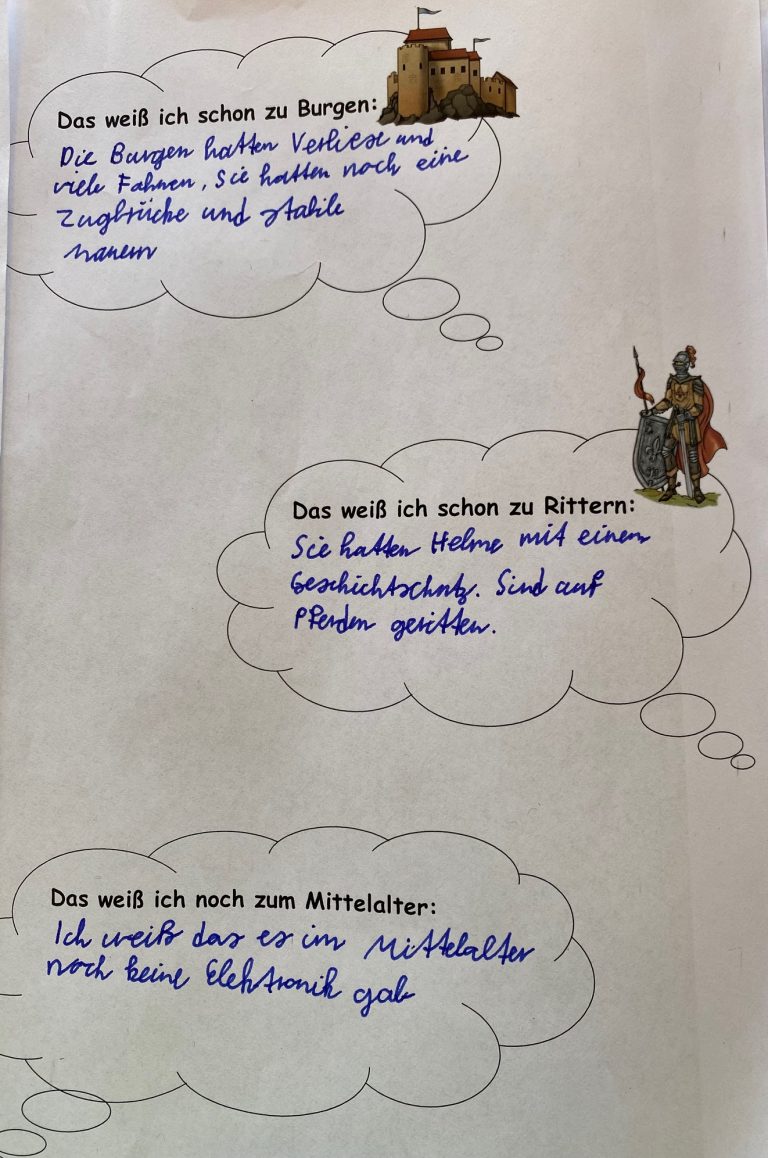 Das weiß ich schon zu Burgen:
Die Burgen hatten Verliese und
viele Fahnen, Sie hatten noch eine
Zugbrücke und stabile
mauern
Das weiß ich schon zu Rittern:
Sie hatten Helme mit einem
Geschichtschutz. Sind auf
Pferden geritten.
Das weiß ich noch zum Mittelalter:
Ich weiß das es im Mittelalter
noch keine Elektronik gab